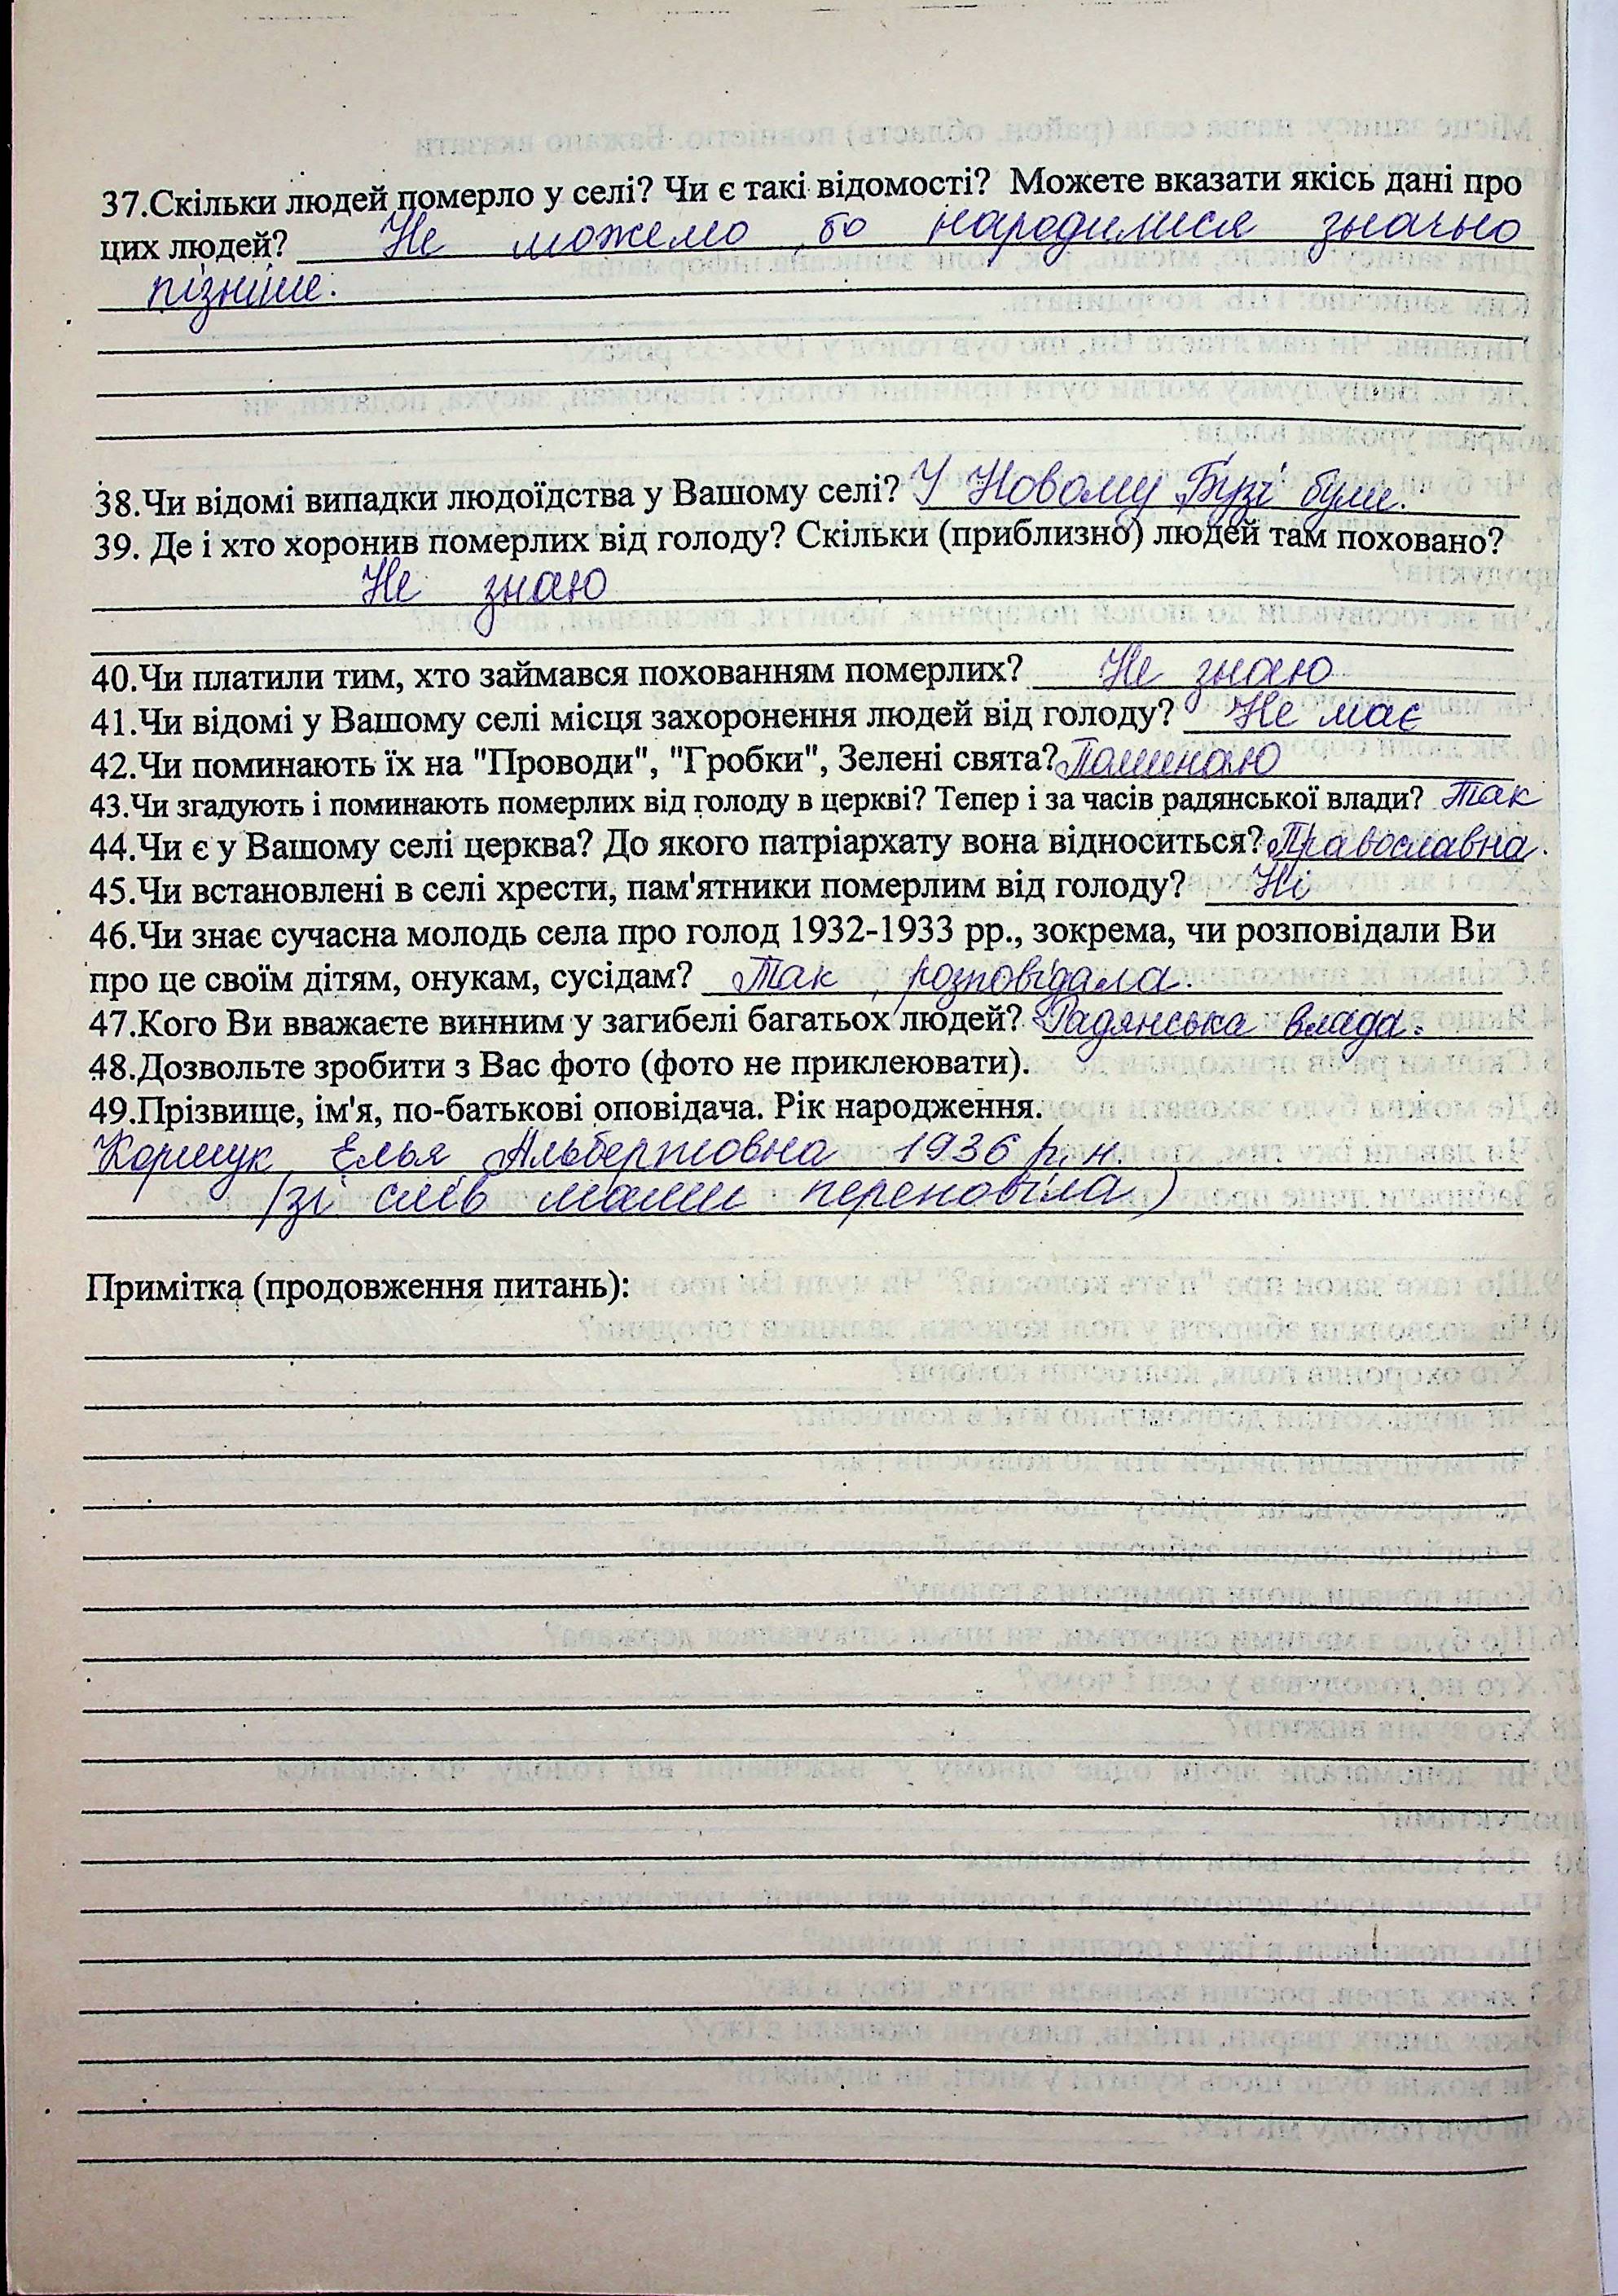 37.Скільки людей померло у селі? Чи є такі відомості? Можете вказати якісь дані про
цих людей? Не можемо, бо народилися значно
пізніше.
38.Чи відомі випадки людоїдства у Вашому селі? У Новому Бузі були.
39. Де і хто хоронив померлих від голоду? Скільки (приблизно) людей там поховано?
Не знаю
40.Чи платили тим, хто займався похованням померлих? Не знаю
41.Чи відомі у Вашому селі місця захоронення людей від голоду? Не має
42.Чи поминають їх на "Проводи", "Гробки", Зелені свята? Поминаю
43.Чи згадують і поминають померлих від голоду в церкві? Тепер і за часів радянської влади? Так
44.Чи є у Вашому селі церква? До якого патріархату вона відноситься? Православна.
45.Чи встановлені в селі хрести, пам'ятники померлим від голоду? Ні
46.Чи знає сучасна молодь села про голод 1932-1933 рр., зокрема, чи розповідали Ви
про це своїм дітям, онукам, сусідам? Так, розповідала.
47.Кого Ви вважаєте винним у загибелі багатьох людей? Радянська влада.
48.Дозвольте зробити з Вас фото (фото не приклеювати).
49.Прізвище, ім'я, по-батькові оповідача. Рік народження.
Альбертовна 1936 р.н.
(зі слів мами переповіла)
Примітка (продовження питань):